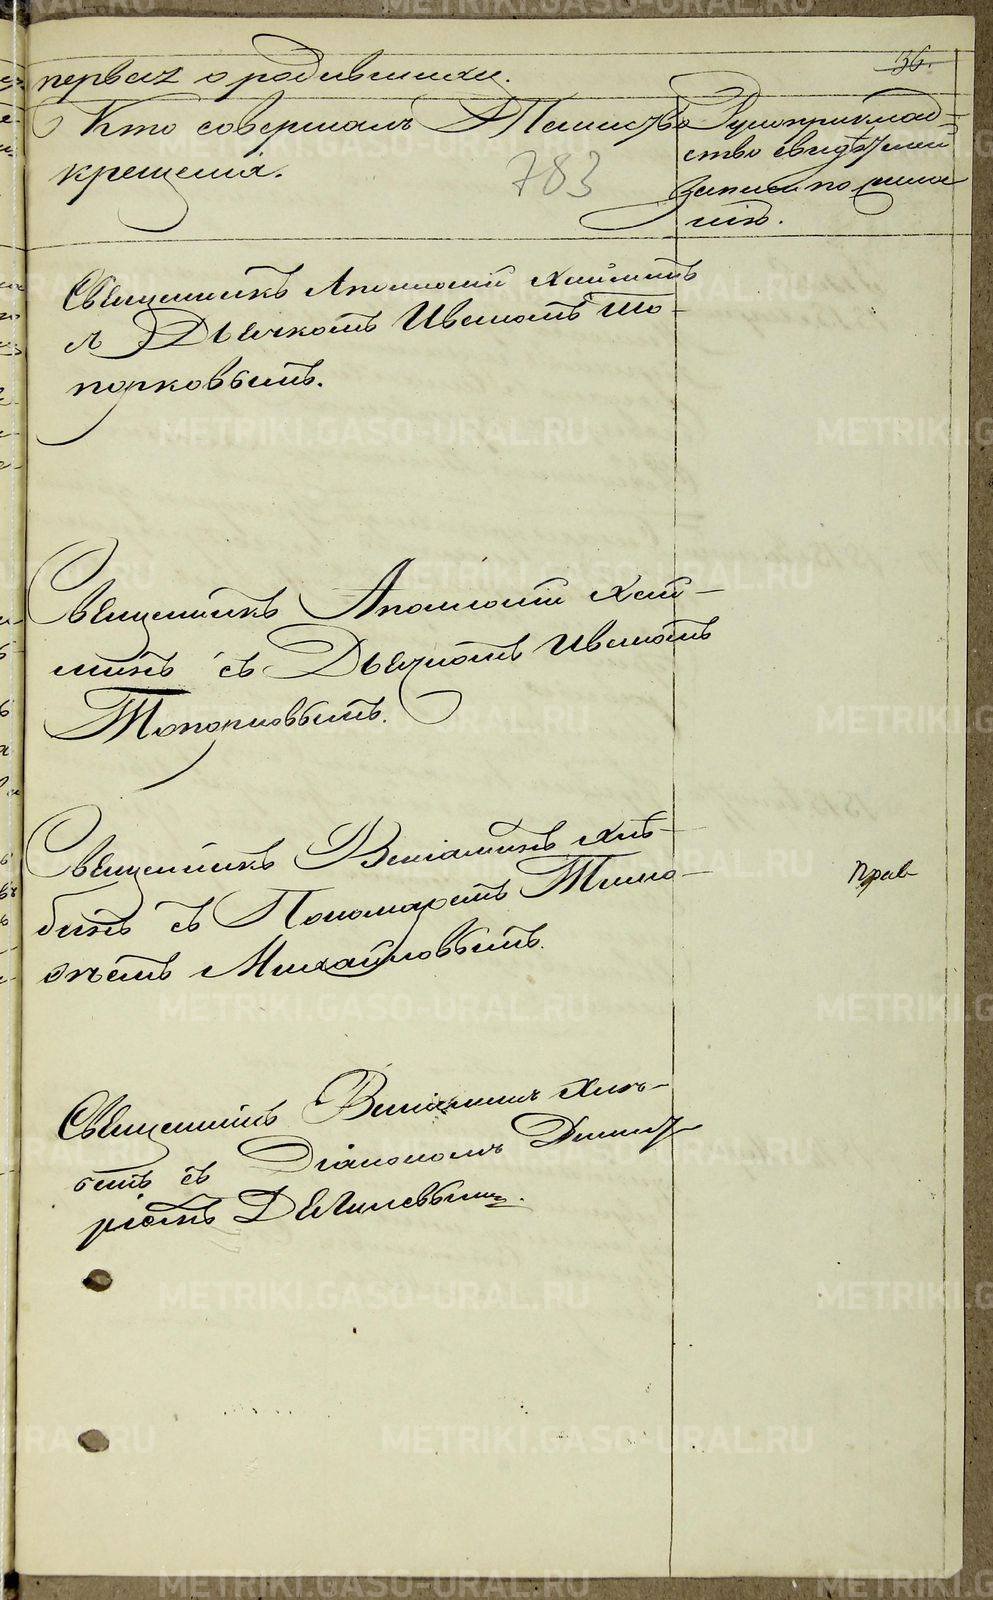 первая о родившихся.
36.
Кто совершалъ Таинство
крещенія.
783
Рукоприклад-
ство свидѣтелей
записи по жела-
нію.
Священникъ Аполлоній
съ Дьячкомъ Иваномъ То-
порковымъ.
Священникъ Аполлоній
съ Дьячкомъ Иваномъ
Топорковымъ.
Священникъ Веніаминъ Хлѣ-
бинъ съ Пономаремъ Тимо-
ѳеемъ Михайловымъ.
Прав
Священникъ Веніаминъ Хлѣ-
бинъ съ Діакономъ Димит-
ріемъ
METRIKI.GASO-URAL.RU